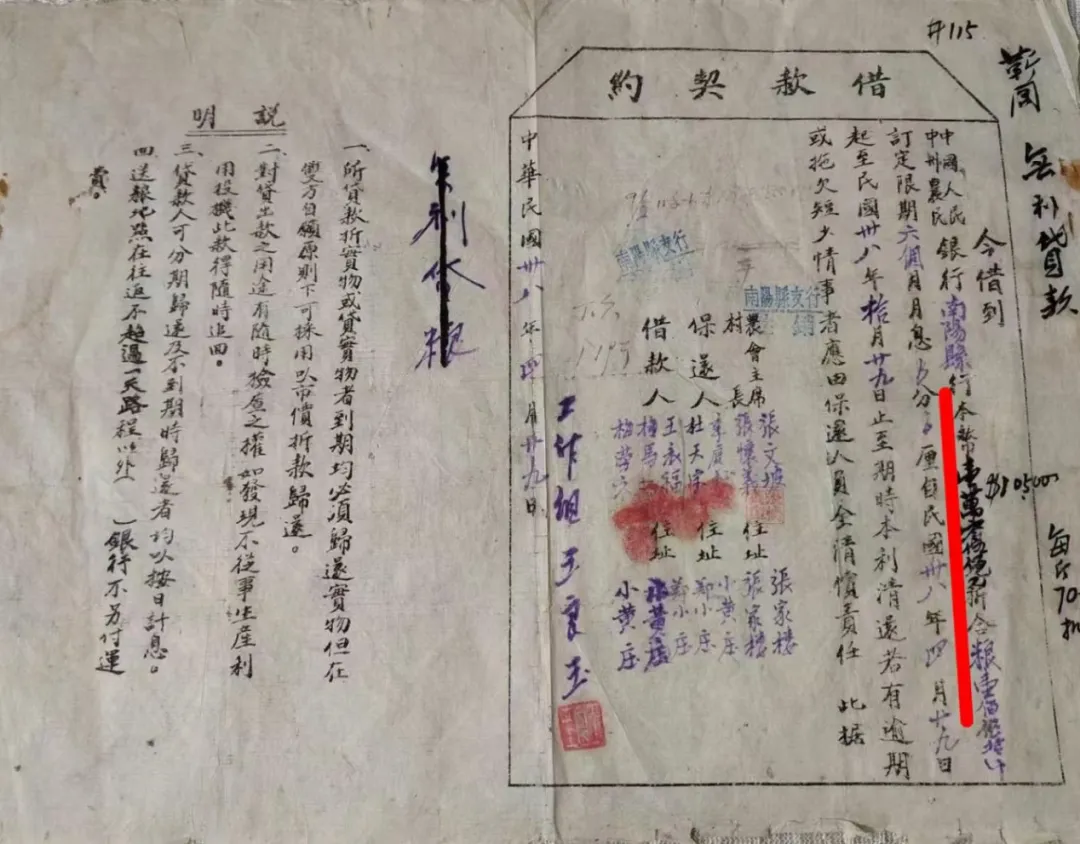 #115
無利貸款
借款契約
今借到
中國人民
中州農民
銀行南陽縣行本幣壹萬
折合粮壹佰
訂定限期六個月月息 分 厘自民國卅八年四月廿九日
起至民國卅八年拾月廿九日止至期時本利清還若有逾期
或拖欠短少情事者應由保還人員全清償責任 此據
$10500
每斤70
南陽縣支行
南陽縣支行
農會主席 張文 住址 張家楼
村長 張懷義 住址 張家楼
保還人 杜天 住址 小黄庄
鄭小庄
借款人 王 住址 鄭小庄
小黄庄
工作組 王
中華民國卅八年四月廿九日
無利貸粮
說明
一、所貸款折實物或貸實物者到期均必須歸還實物但在
雙方自願原則下可採用以市價折款歸還。
二、對貸出款之用途有隨時驗查之權如發現不從事生産利
用投機此款得隨時追回。
三、貸款人可分期歸還及不到期時歸還者均以按日計息。
四、送粮地點在往返不超過一天路程以外 （銀行不另付運
費。